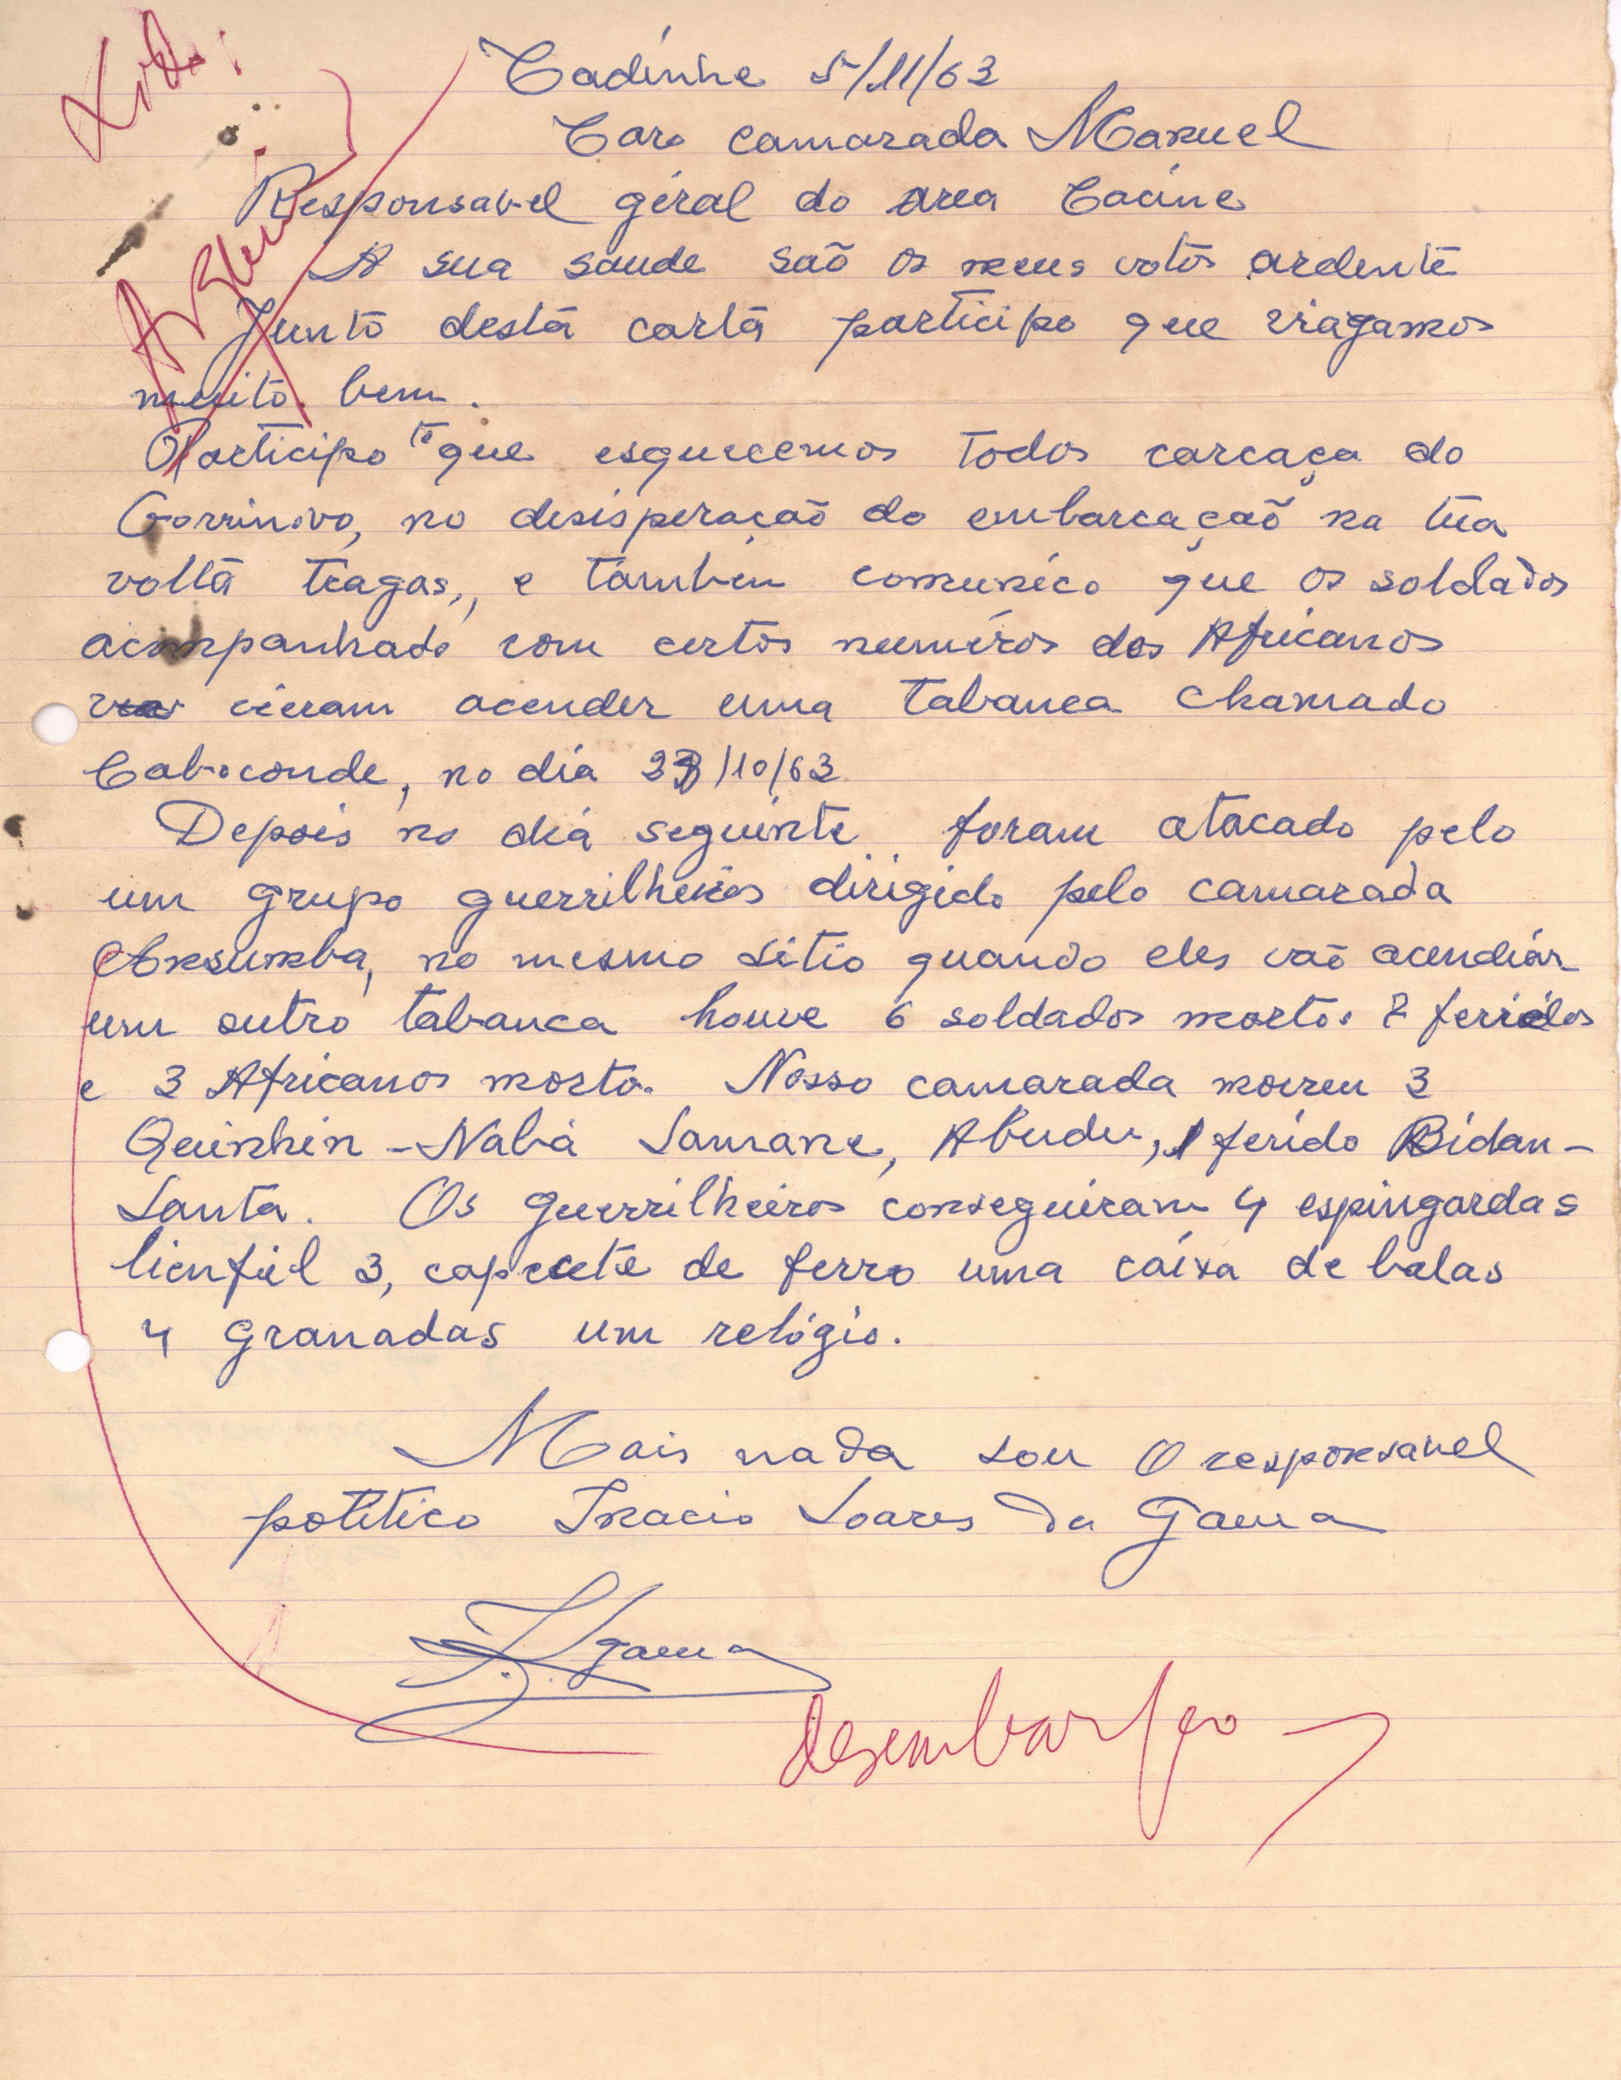 Cadinhe 5/11/63
Caro camarada Manuel
Responsavel géral do area Cacine
A sua saude saõ os meus votos ardente
Junto desta carta participo que viagamos
muito bem.
Participo te que esquecemos todos carcaça do
no desisperaçaõ do embarcaçaõ na tua
volta tragas, e também comunico que os soldados
acompanhado com certos numéros dos Africanos
vieram acender uma tabanca chamado
Caboconde, no dia /10/63
Depois no diá seguinte foram atacado pelo
um grupo guerrilheiros dirigido pelo camarada
no mesmo sitio quando eles vaõ acendiár
um outro tabanca houve 6 soldados mortos feridos
e 3 Africanos morto. Nosso camarada morreu 3
Quinhin - Nabá Samane, Abudu, 1 ferido Bidan-
Santa. Os guerrilheiros conseguiram 4 espingardas
3, capecete de ferro uma caixa de balas
4 granadas um relógio.
Mais nada sou O responsavel
politico Inacio Soares da Gama
Gama